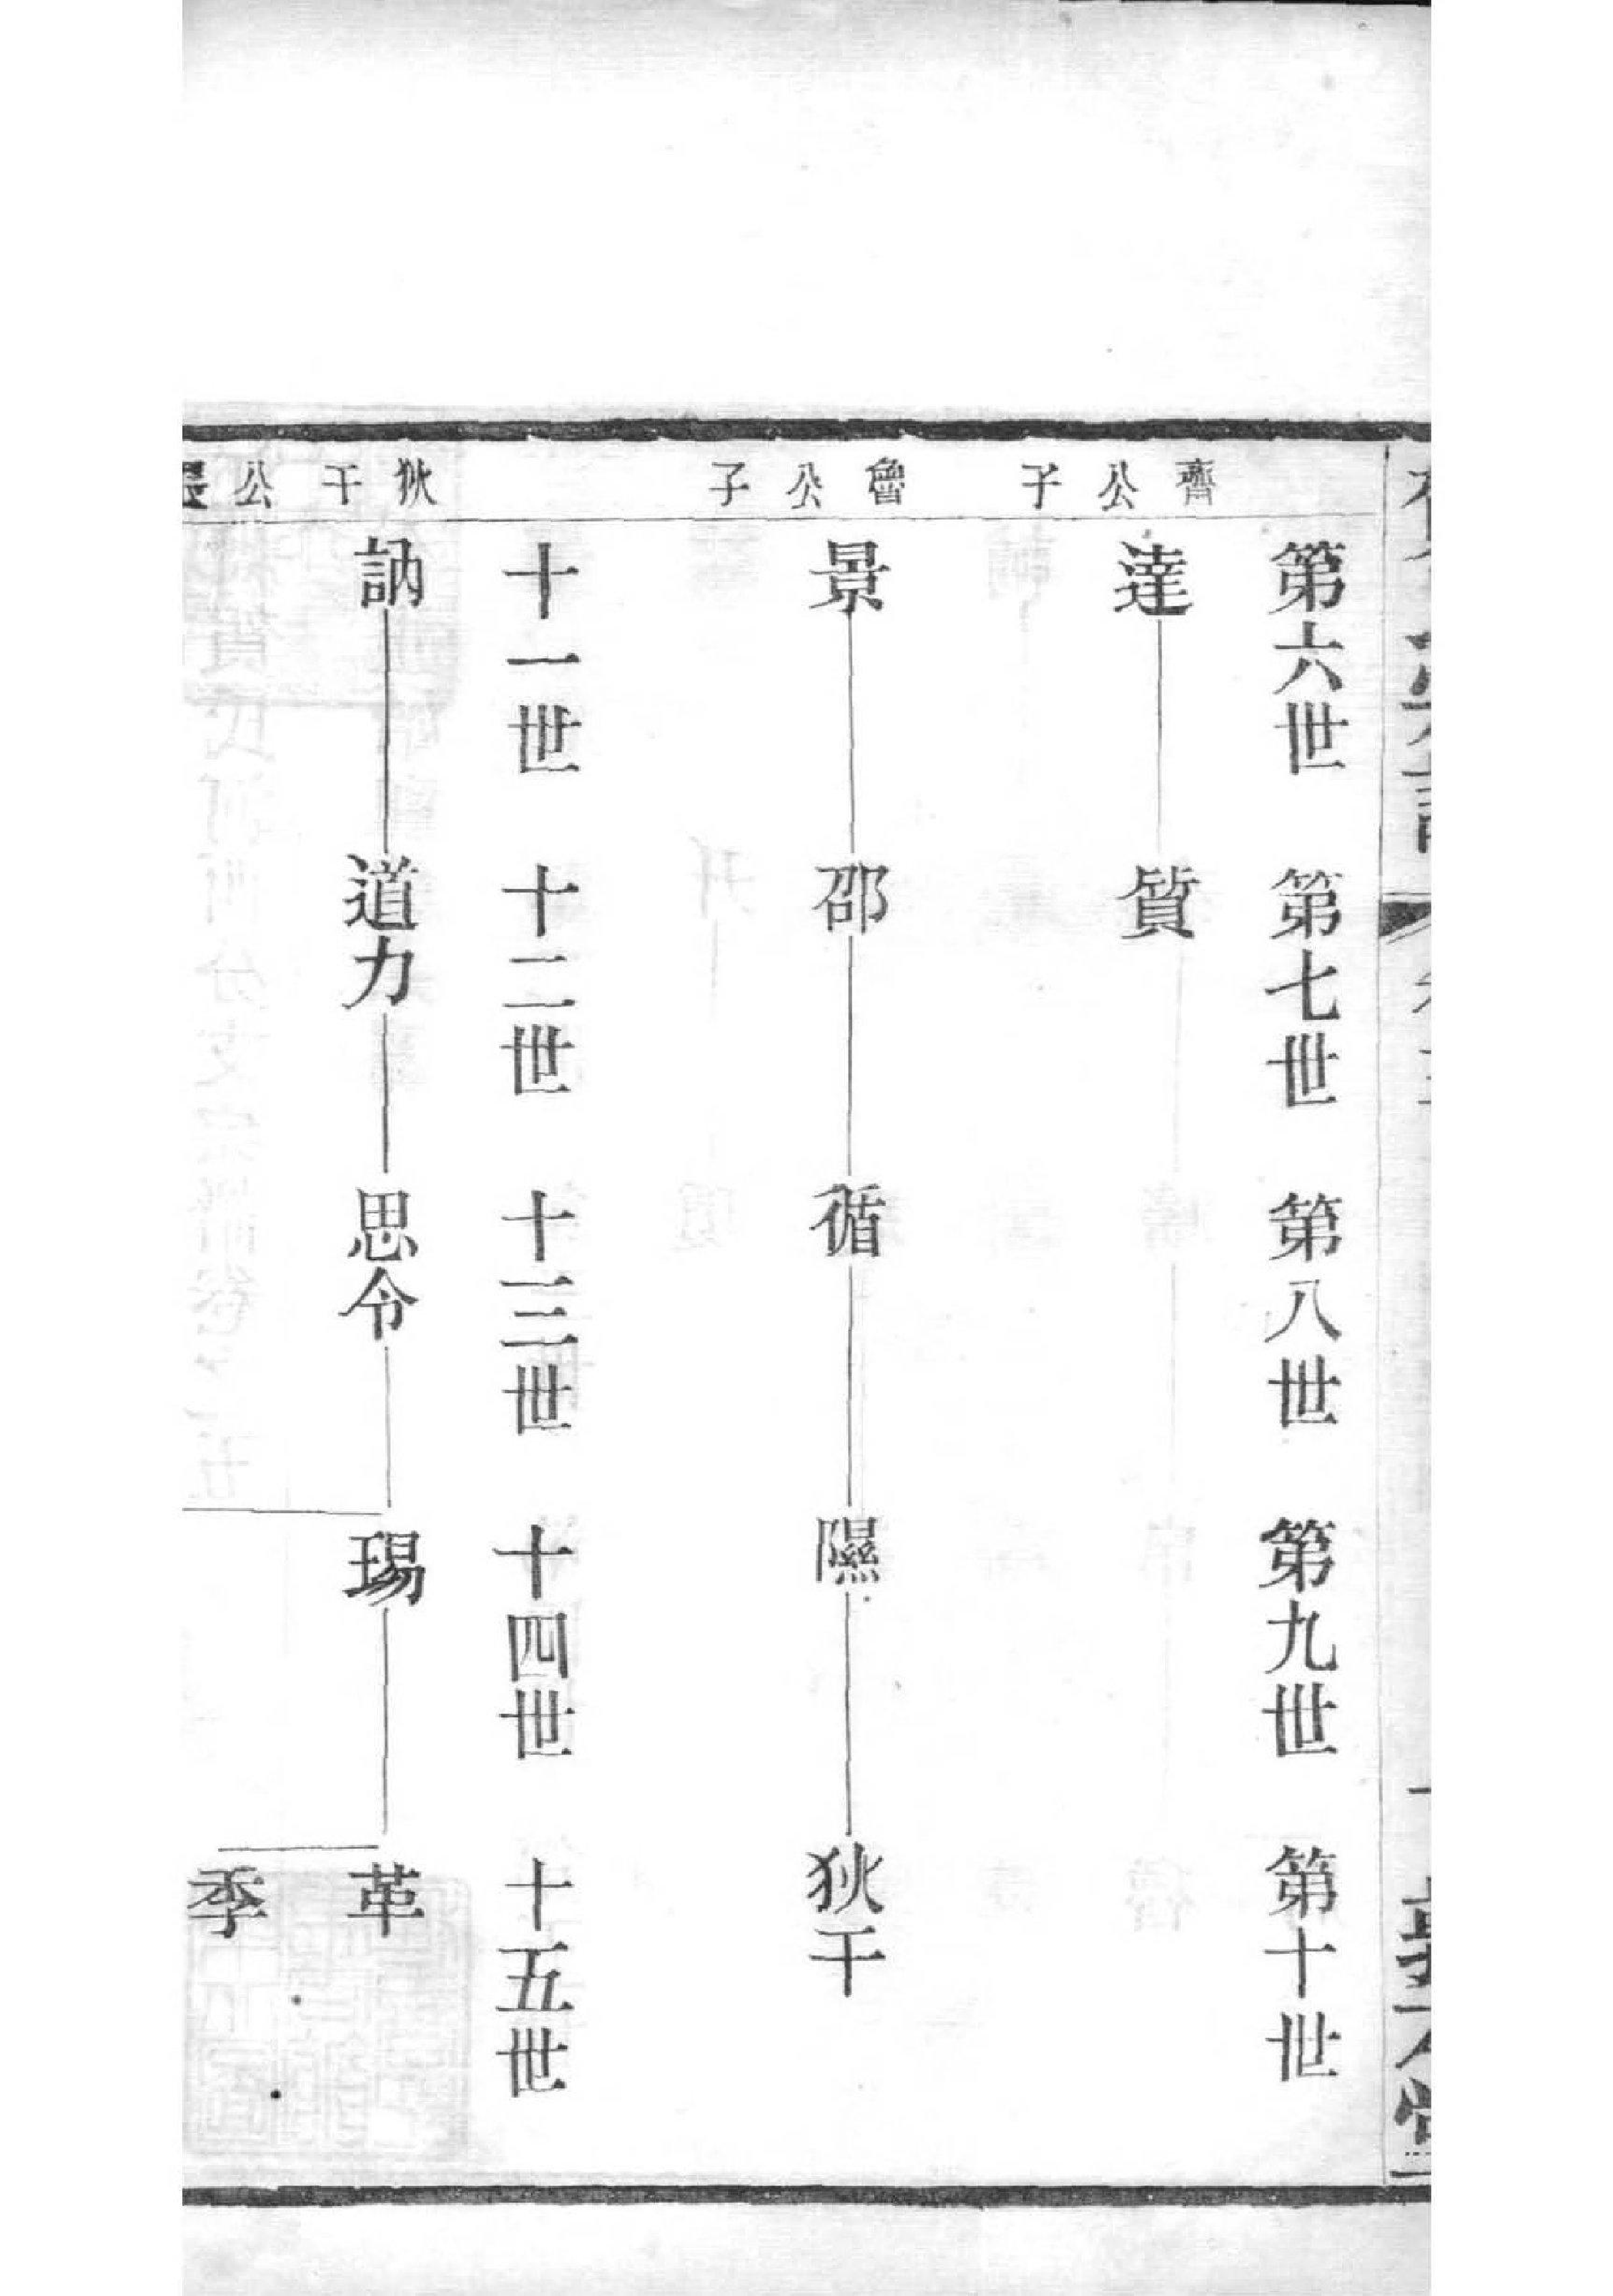 第六世 第七世 第八世 第九世 第十世
齊公子
達 質
魯公子
景 邵 循 隰 狄干
十一世 十二世 十三世 十四世 十五世
狄干公
訥 道力 思令 琩 革
季